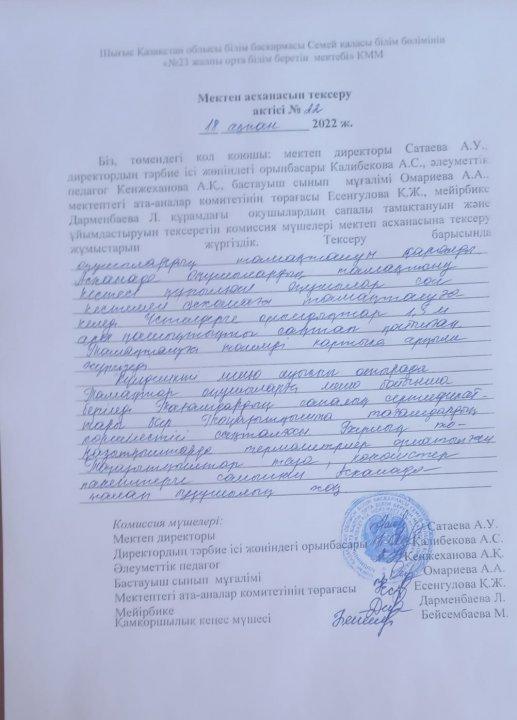 Шығыс Қазақстан облысы білім басқармасы Семей қаласы білім бөлімінің
«№23 жалпы орта білім беретін мектебі» КММ
Мектеп асханасын тексеру
актісі № 22
18 ақпан 2022 ж.
Біз, төмендегі қол қоюшы: мектеп директоры Сатаева А.У.,
директордың тәрбие ісі жөніндегі орынбасары Калибекова А.С., әлеуметтік
педагог Кенжеханова А.Қ., бастауыш сынып мұғалімі Омариева А.А.,
мектептегі ата-аналар комитетінің төрағасы Есенгулова Қ.Ж., мейірбике
Дарменбаева Л. құрамдағы оқушылардың сапалы тамақтануын және
ұйымдастыруын тексеретін комиссия мүшелері мектеп асханасына тексеру
жұмыстарын жүргіздік. Тексеру барысында
оқушылардың тамақтануын қаралды.
Асханада оқушылардың тамақтану
кестесі құрылған оқушылар сол
кестемен асханаға тамақтануға
келеді. Үстелдерге орындықтар 1,5 м
ара қашықтықты сақтап қойылған
Тамақтануға төлемді картыға арқылы
жүргізеді
Күнделікті меню ауысып отырады
Тамақтар оқушыларға меню бойынша
беріледі Тағамдардың сапалық сертификат-
тары бар Тоңазытқышта тағамдардың
көршілестігі сақталған Барлық то-
ңазытқыштарда термометрлер орнатылған
Тоңазытқыштар таза,
пакеттерге салынған Асханада
талап бұзушылық жоқ
Комиссия мүшелері:
Мектеп директоры Сатаева А.У.
Директордың тәрбие ісі жөніндегі орынбасары Калибекова А.С.
Әлеуметтік педагог Кенжеханова А.Қ.
Бастауыш сынып мұғалімі Омариева А.А.
Мектептегі ата-аналар комитетінің төрағасы Есенгулова Қ.Ж.
Мейірбике Дарменбаева Л.
Қамқоршылық кеңес мүшесі Бейсембаева М.